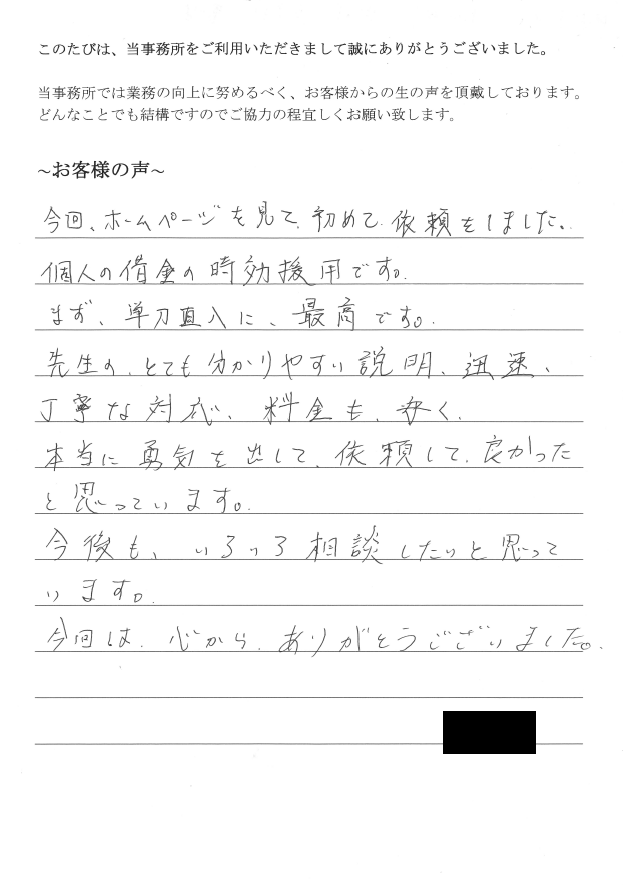 このたびは、当事務所をご利用いただきまして誠にありがとうございました。
当事務所では業務の向上に努めるべく、お客様からの生の声を頂戴しております。
どんなことでも結構ですのでご協力の程宜しくお願い致します。
~お客様の声~
今回、ホームページを見て、初めて、依頼をしました。
個人の借金の時効援用です。
まず、単刀直入に、最高です。
先生の、とても分かりやすい説明、迅速、
丁寧な対応、料金も、安く、
本当に勇気を出して、依頼して、良かった
と思っています。
今後も、いろいろ相談したいと思って
います。
今回は、心から、ありがとうございました。